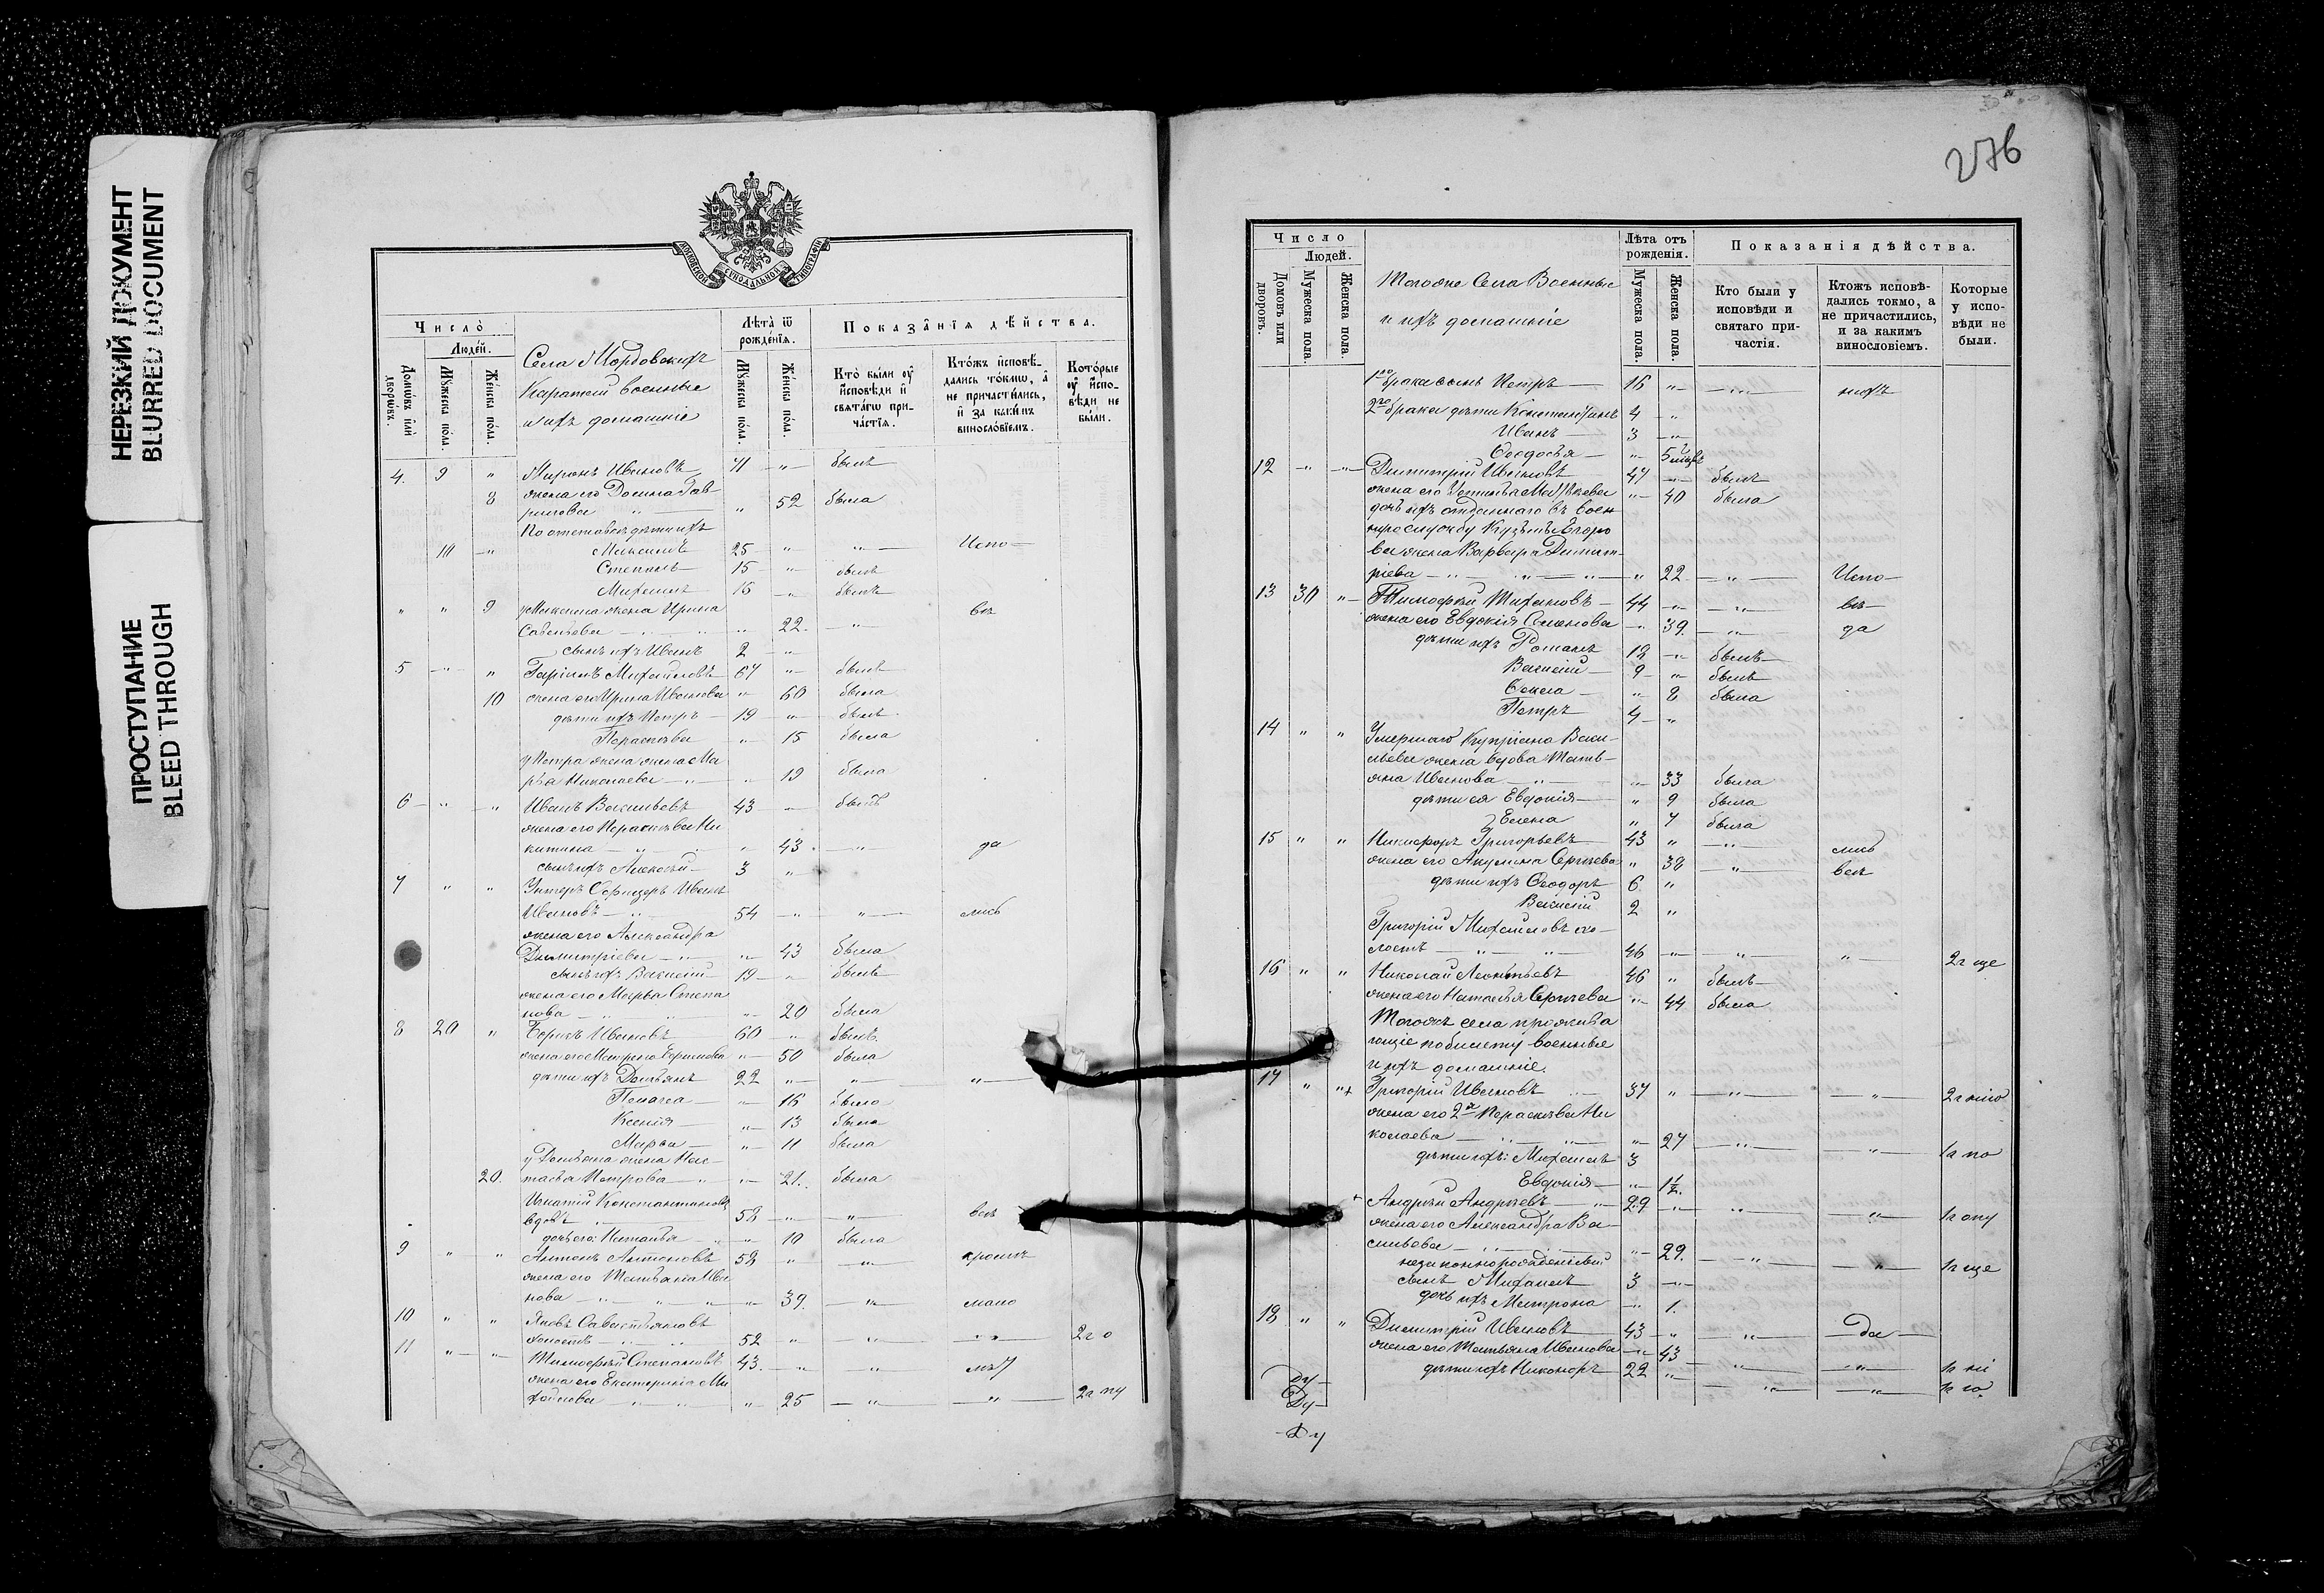 НЕРЕЗКИЙ ДОКУМЕНТ
BLURRED DOCUMENT
ПРОСТУПАНИЕ
BLEED THROUGH
МОСКОВСКОЙ СУНОДАЛЬНОЙ ТИПОГРАФІИ
Число̀
Людѐй.
Домѡ́въ и҆лѝ дворѡ́въ.
Мꙋ́жеска по́ла.
Же́нска по́ла.
Села Мордовскихъ
Каратай военные
и ихъ домашніе
Лѣ́та ѿ рожде́нїѧ.
Мꙋ́жеска по́ла.
Же́нска по́ла.
Показа̑нїѧ дѣ́йства.
Кто̀ бы́ли ᲂу҆ и҆сповѣ́ди и҆ свѧта́гѡ прича́стїѧ.
Кто́жъ и҆сповѣ́дались то́кмѡ, а҆ не причасти́лись, и҆ за каки́мъ винословїемъ.
Кото́рые ᲂу҆ и҆сповѣ́ди не бы́ли.
4. 9 " Миронъ Ивановъ 71 " былъ
8 жена его Домна Гав-
рилова " 52 была
10 " Максимъ 25 " " Испо-
Степанъ 15 " былъ
Михаилъ 15 " былъ
" " 9 у Максима жена Ирина вѣ
Савельева " 22. "
сынъ ихъ Иванъ 2 "
5 " " Михайловъ 67 " былъ
10 жена его Ирина Иванова " 60 была
дѣти ихъ Петръ 19 " былъ
Параскева " 15 была
у Петра жена Ма-
рѳа Николаева " 19 была
6 " " Иванъ Васильевъ 43 " былъ
жена его Параскева Ни
китина " 43. " да
сынъ ихъ Алексѣй 3 "
7 " " Унтеръ Офицеръ Иванъ
Ивановъ 54 " " лись
жена его Александра
Димитріева " 43 была
сынъ ихъ Василій 19 " былъ
жена его Марѳа Степа
нова " 20 была
8 20 " Борисъ Ивановъ 60 " былъ
жена его Матрона " 50 была
дѣти ихъ Демьянъ 22 " " "
Пелагея " 16 была
Ксенія " 13 была
Марѳа " 11 была
у Демьяна жена Нас-
20. тасья Петрова " 21. была
Игнатій Константиновъ
вдовъ 58 " " всѣ
дочь его: Наталья " 10 была
9 " " Антонъ Антоновъ 58 " " кромѣ
жена его Татьяна Ива
нова " 39. " мало
10 " " Яковъ Савастьяновъ
холостъ 52 " " " 2г о
11 " " Тимофѣй Степановъ 43. " "
жена его Екатерина Ми
хайлова " 25 " " 2г пу
276
Число
Людей.
Домовъ или дворовъ.
Мужеска пола.
Женска пола.
Тогоже Села Военные
и ихъ домашніе
Лѣта отъ рожденія.
Мужеска пола.
Женска пола.
Показанія дѣйства.
Кто были у исповѣди и святаго причастія.
Ктожъ исповѣдались токмо, а не причастились, и за какимъ винословіемъ.
Которые у исповѣди не были.
1го брака сынъ Петръ 16 " "
2го брака дѣти Константинъ 4 "
Иванъ 3 "
Ѳеодосья "
12 " " Димитрій Ивановъ 47 " былъ
жена его Устинья Матвѣева " 40 была
дочь ихъ отданнаго въ воен
ную службу Кузьмы Егоро
ва жена Варвара Димит-
ріева " 22 " Испо-
13 30 " Тимофѣй 44 " " вѣ-
жена его Евдокія Семенова " 39. " да
дѣти ихъ Романъ 12 " былъ
Василій 9 " былъ
Ѳекла " 8 была
Петръ 4 "
14 " " Умершаго Купріана Васи-
льева жена вдова Тать-
яна Иванова " 33 была
дѣти ея Евдокія " 9 была
Елена " 7 была
15 " " Никифоръ Григорьевъ 43 " " лись
жена его Акулина Сергѣева " 38 " всѣ
дѣти ихъ Ѳеодоръ 6 "
Василій 2 "
Григорій Михайловъ хо-
лостъ 46 " " " 2г ще
16 " " Николай Леонтьевъ 46 " былъ
жена его Наталья Сергѣева " 44 была
Тогожъ села прожива
ющіе по билету военные
и ихъ домашніе.
17 " " + Григорій Ивановъ 37 " " "
жена его 2я Параскева Ни
колаева " 27 " " 1г по
дѣти ихъ: Михаилъ 3
Евдокія " 1½.
+ Андрей Андреевъ 29 " " " 1г опу
жена его Александра Ва-
сильева " 29. " " 1г ще
незаконнорожденный
сынъ Михаилъ 3 "
дочь ихъ Матрона " 1.
18 " " Димитрій Ивановъ 43 " " да
жена его Татьяна Иванова " 43 " " 1г ні
дѣти ихъ Никоноръ 22 " " "
Ду
Ду
Ду